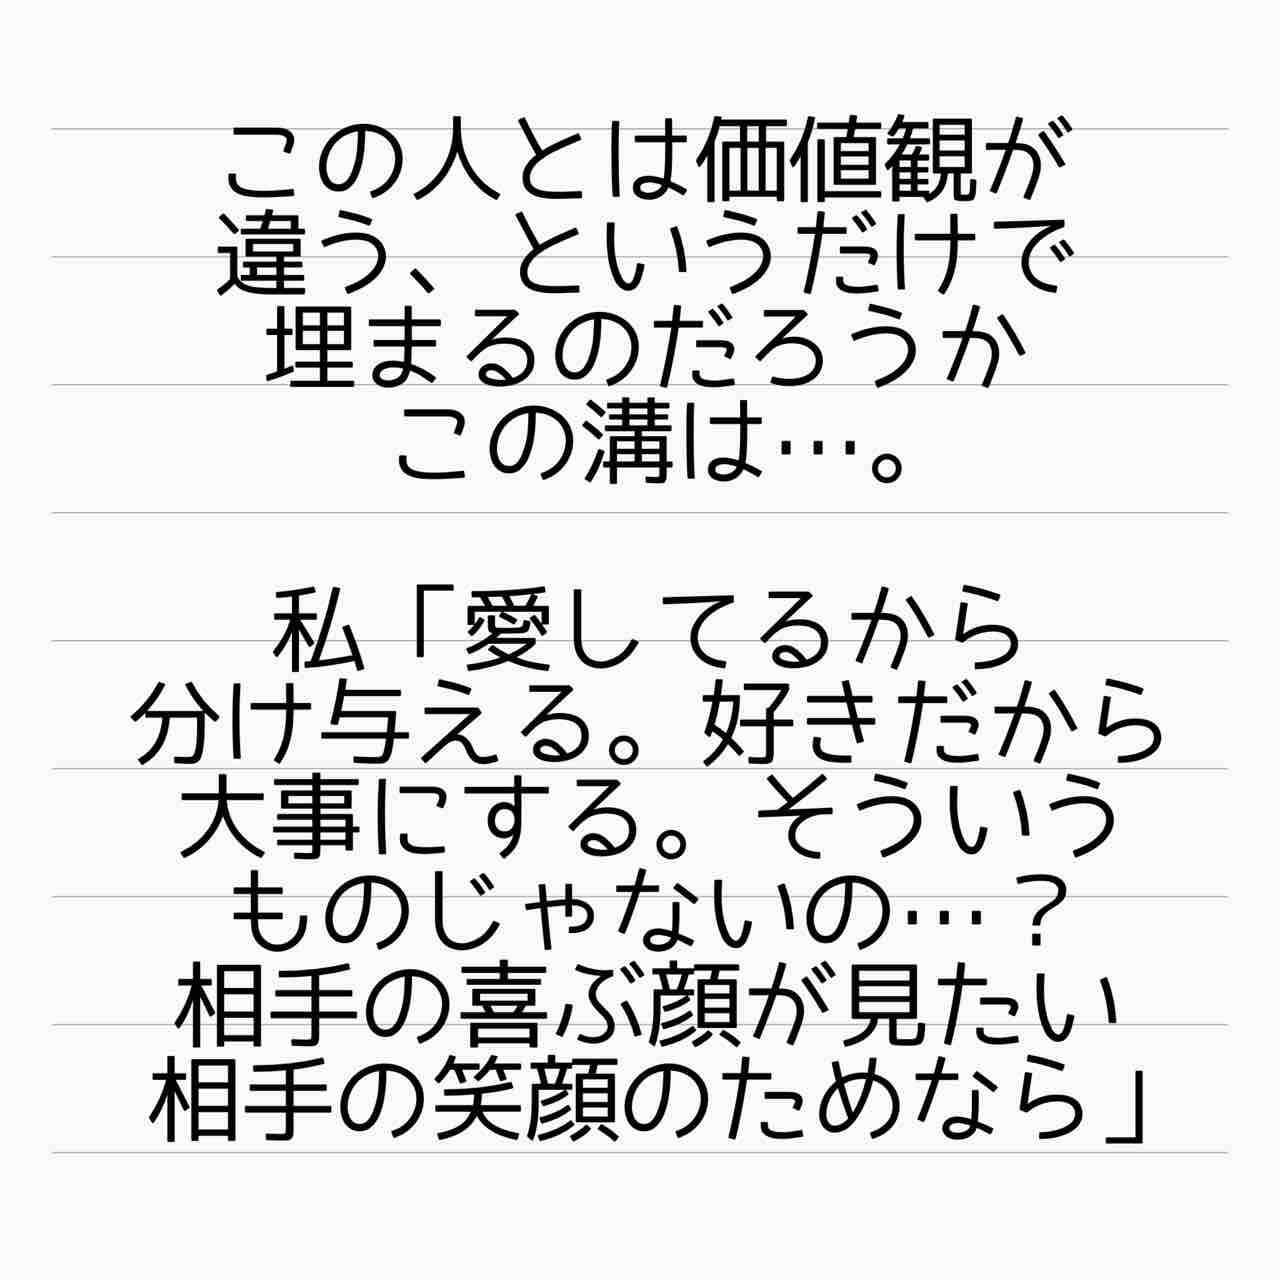 この人とは価値観が
違う、というだけで
埋まるのだろうか
この溝は…。
私「愛してるから
分け与える。好きだから
大事にする。そういう
ものじゃないの…？
相手の喜ぶ顔が見たい
相手の笑顔のためなら」